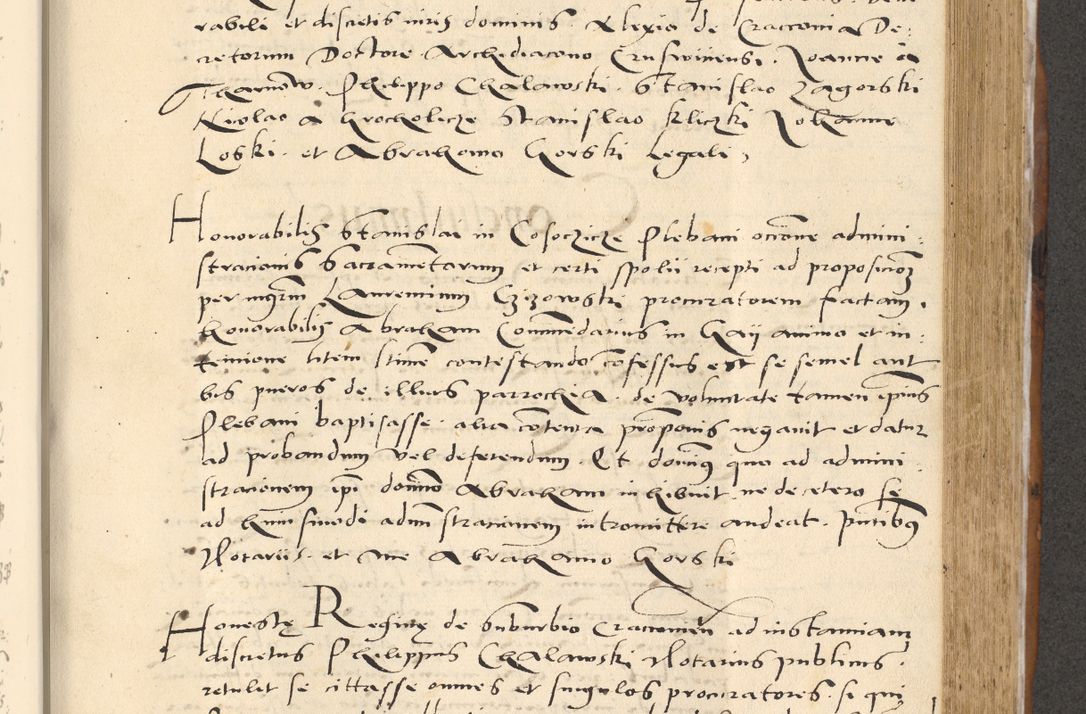 rabili et discretis viris dominis Alexio de Cracovia De:
cretorum Doctore Archidiacono Crusvicensi. Joanne a
Tharnow. Philippo Chalawski. Stanislao Zagorski
Nicolao a Grocholicze Stanislao Kliczki Johanne
Loski. et Abrahamo Gorski legali,
Honorabilis Stanislai in Cosoczicze Plebani occone admini:
stracionis Sacramentorum et certi spolii recepti ad proposicionem
per mgrm Laurencium Czizowski procuratorem factam.
Honorabilis Abraham Commendarius in Gaij animo et in:
tencione litem contestando confessus est se semel aut
bis pueros de illius parrochia. de voluntate tamen ipsius
Plebani baptisasse. alia contenta proponis negavit et datur
ad probandum vel deferendum. Et dominus quo ad admini:
stracionem ipsi domino Abraham inhibuit. ne de cetero se
ad huiusmodi admstracionem intromittere audeat. Pntibus
Notariis. et me Abrahamo Gorski
Honestę Reginę de suburbio Cracovien ad instanciam
discretus Philippus Chalawski Notarius publicus.
retulit se cittasse omnes et singulos procuratores. si qui